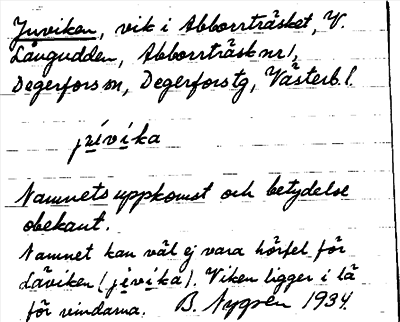 Juviken, vik i Abborrträsket, V.
Långudden, Abborrträsk nr 1,
Degerfors sn, Degerfors tg, Västerb. l.
jívika
Namnets uppkomst och betydelse
obekant.
Namnet kan väl ej vara hörfel för
Läviken (jívika). Viken ligger i lä
för vindarna. B. Nygren 1934.